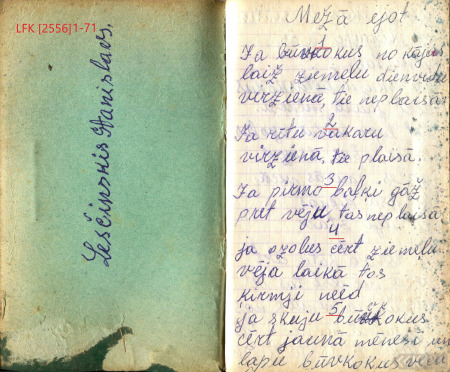 LFK [2556]1-71
Leščinskis Staņislavs,
Mežā ejot
1
Ja būvkokus no kājas
laiž ziemeļu dienvidu
virzienā, tie neplaisā.
2
Ja rītu vakaru
virzienā, tie plaisā.
3
Ja pirmo baļķi gāž
pret vēju tas neplaisā
4
ja ozolus cērt ziemeļu
vēja laikā tos
ķirmji neēd
5
ja skuju būvkokus
cērt jaunā mēnesī un
lapu būvkokus